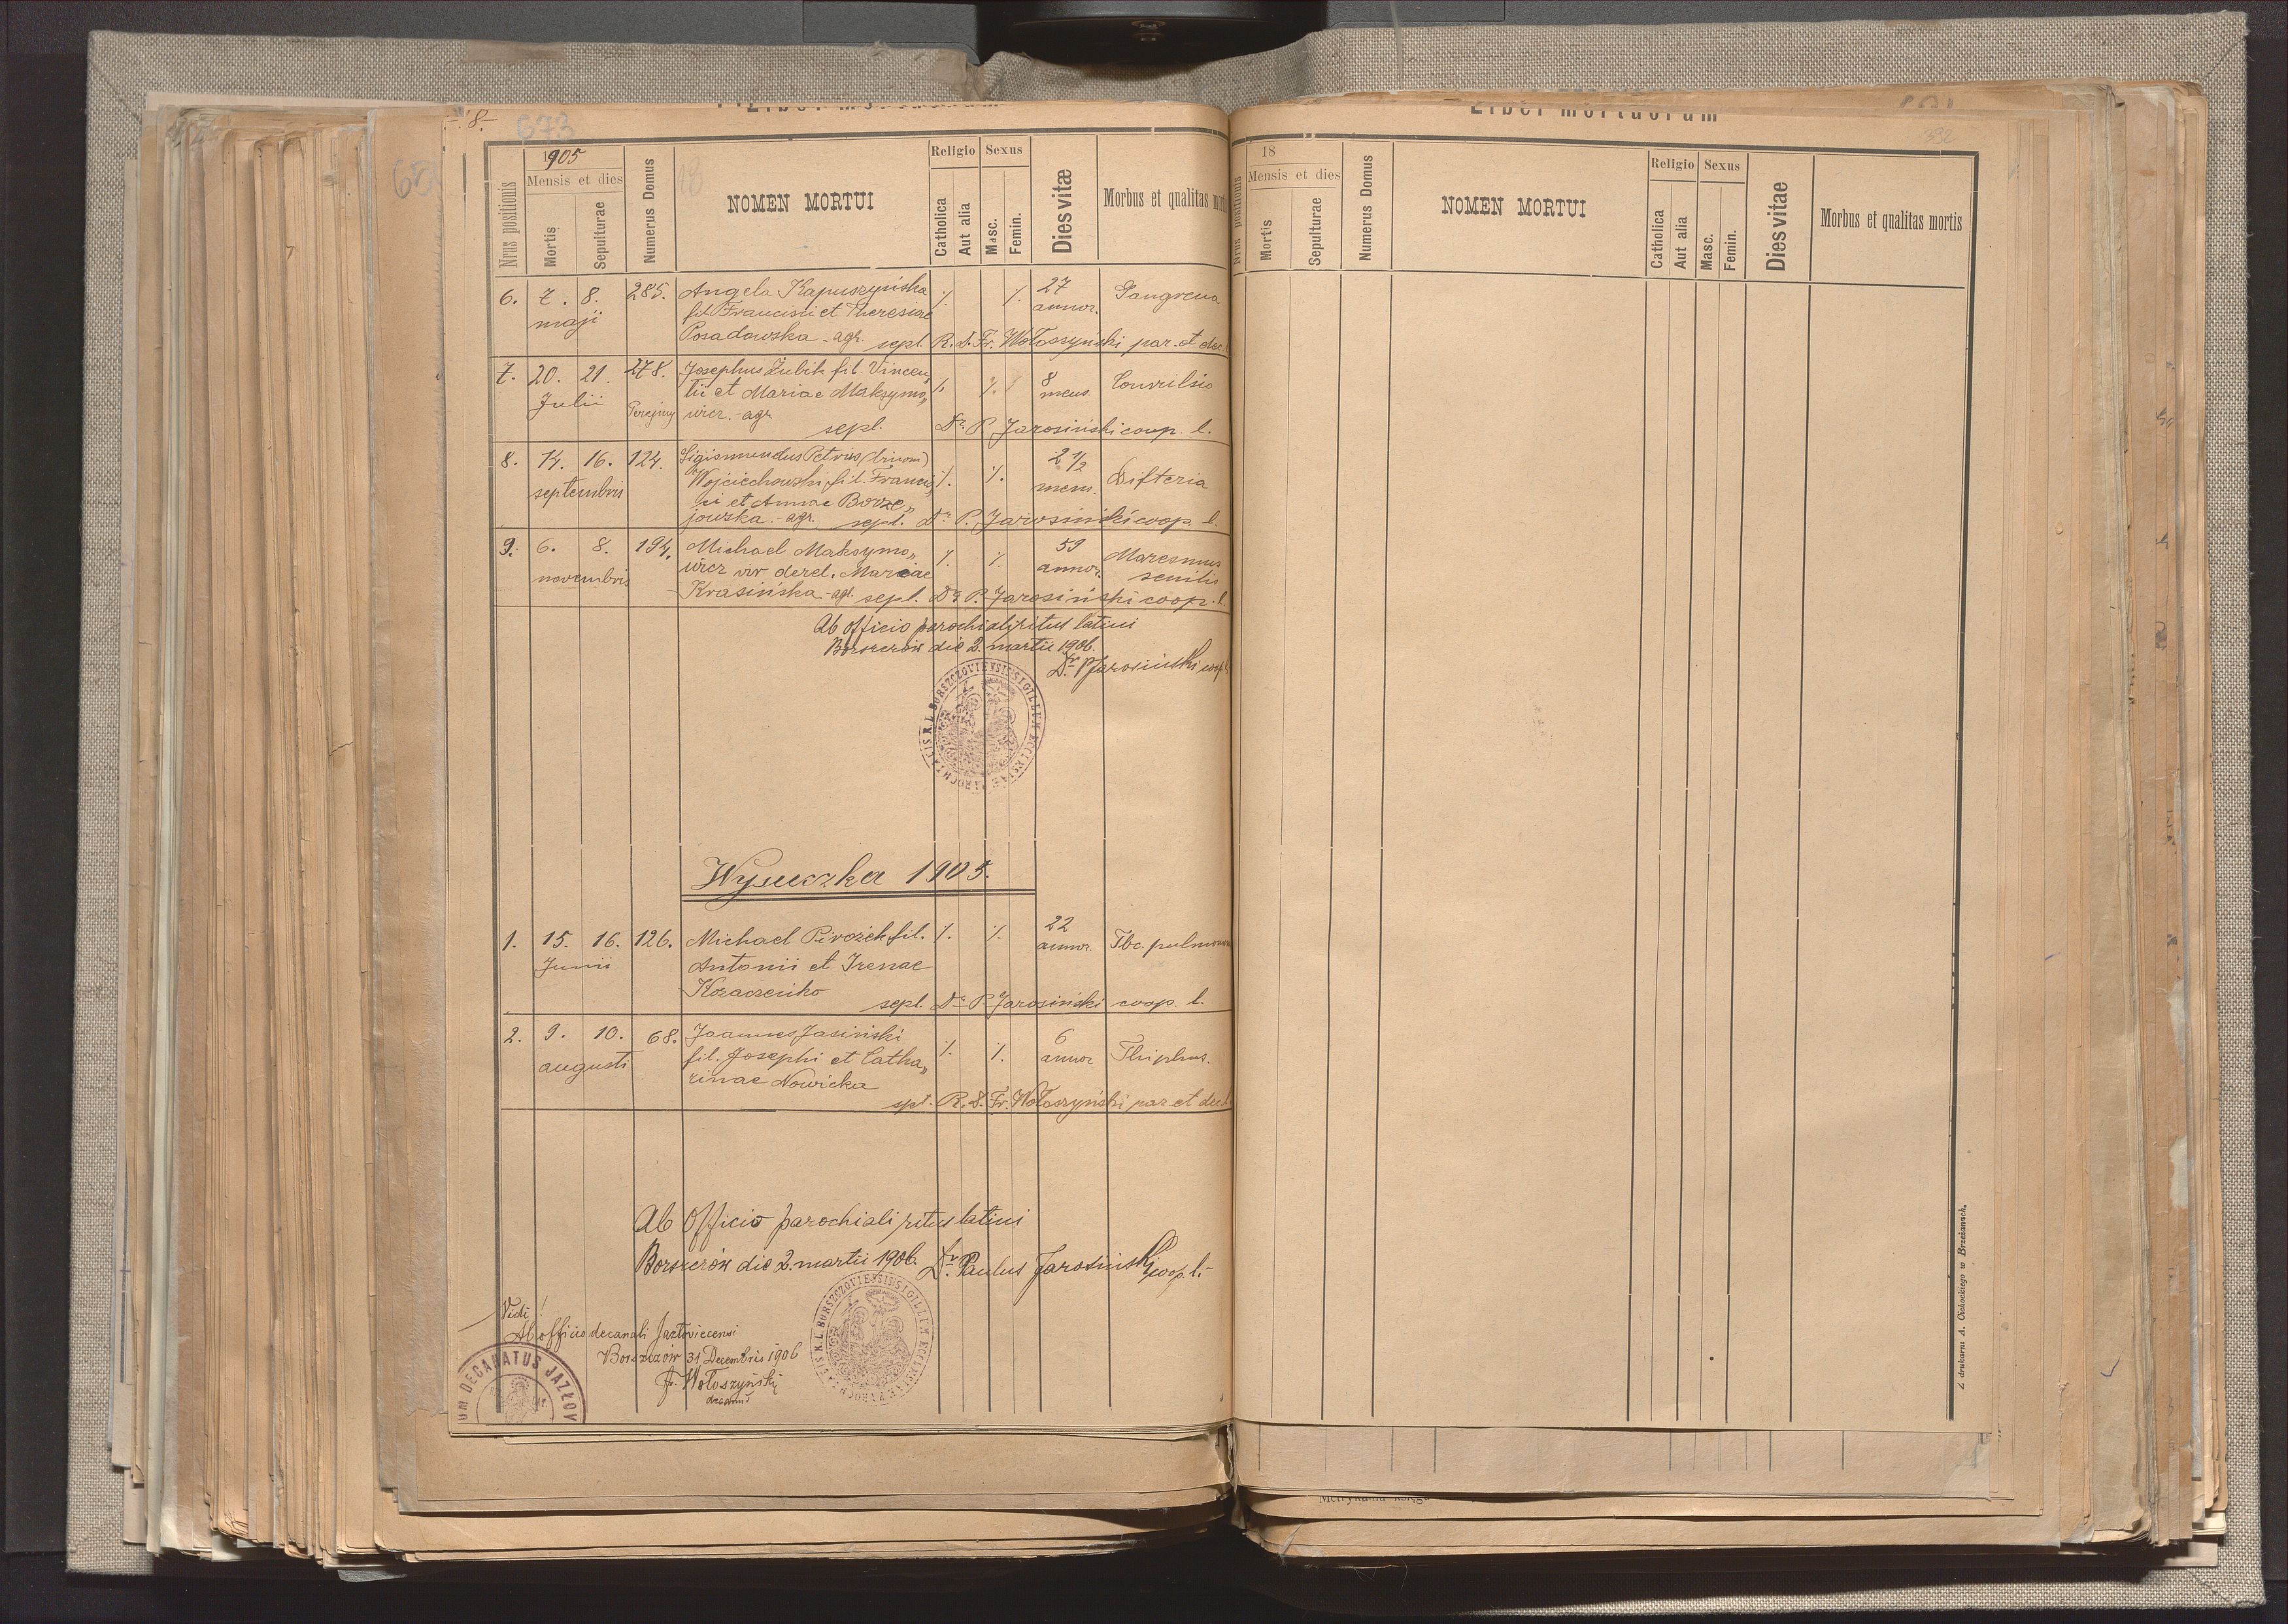 8.
673
1905
Nrus positionis
Mensis et dies
Mortis
Sepulturae
Numerus Domus
NOMEN MORTUI
Religio
Catholica
Aut alia
Sexus
Masc.
Femin.
Dies vitæ
Morbus et qualitas
6. 7. 8. 285. Angela Kapuszyńska % % 27 Gangrena
maji fil. Francisci et Theresiae annor.
Posadowska - agr. sepl. R. D. Fr. Wołoszyński par. et dec.
7. 20. 21. 278. Josephus Żubik fil. Vincen„ % % 8 Convulsio
Julii tii et Mariae Maksymo„ mens.
wicz. - agr.
sepl. Dr. P. Jarosiński coop. l.
8. 14. 16. 124. Sigismundus Petrus (binom) % % 2 1/2 Difteria
septembris Wojciechowski fil. Francis„ mens.
ci et Annae Borze„
jowska. - agr. sepl. Dr. P. Jarosiński coop. l.
9. 6. 8. 194. Michael Maksymo„ % % 59 Maresmus
novembris wicz vir derel. Mariae annor. senilis
Krasińska - agr. sepl. Dr. P. Jarosiński coop. l.
Ab officio parochiali ritus latini
Borszczów die 2. martii 1906.
Dr. P Jarosiński coop
PAROCHIALIS R. L. BORSZCZOVIENSIS SIGILLUM ECCLESIAE
Wysuczka 1905.
1. 15. 16. 126. Michael Pirożek fil. % % 22 Tbc. pulmonum
Junii Antonii et Irenae annor.
Kozaczeńko
sepl. Dr. P. Jarosiński coop. l.
2. 9. 10. 68. Joannes Jasiński % % 6 Thiphus.
augusti fil. Josephi et Catha„ annor
rinae Nowicka
spt. R. D. Fr. Wołoszyński par et dec
Ab officio parochiali ritus latini
Borszczów die 2. martii 1906. Dr. Paulus Jarosiński coop. l.-
Vidi!
Ab officio decanali Jazłoviecensi
Borszczów 31 Decembris 1906
Fr. Wołoszyński
decanus
UM DECANATUS JAZŁOV
PAROCHIALIS R. L. BORSZCZOVIENSIS SIGILLUM ECCLESIAE
Liber mortuorum
18
Nrus positionis
Mensis et dies
Mortis
Sepulturae
Numerus Domus
NOMEN MORTUI
Religio
Catholica
Aut alia
Sexus
Masc.
Femin.
Dies vitae
Morbus et qualitas mortis
Z drukarni A. Cichockiego w Brzeżanach.